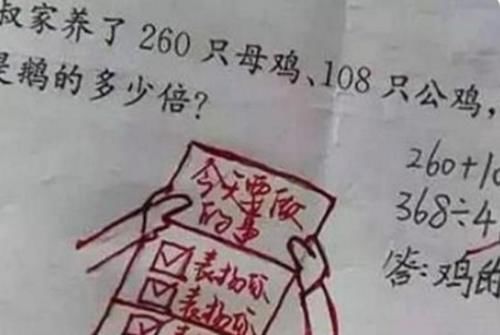 叔家养了 260 只母鸡、108 只公鸡，
是鹅的多少倍？
260+10
368÷4
答：鸡的
今天要做
的事
表扬你
表扬你